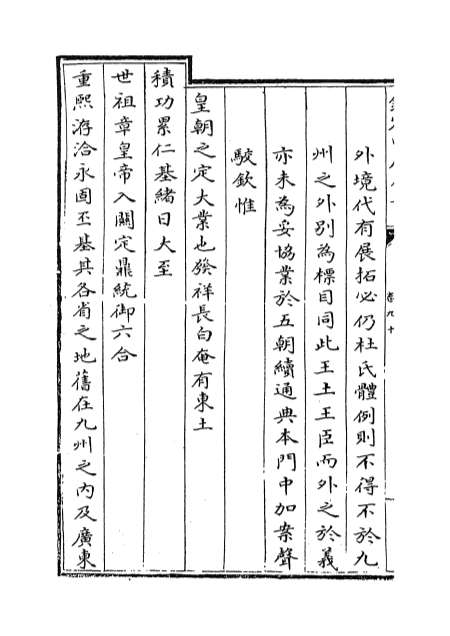 外境代有展拓必仍杜氏體例則不得不於九
州之外别為標目同此王土王臣而外之於義
亦未為妥協業於五朝續通典本門中加案聲
駮欽惟
皇朝之定大業也發祥長白奄有東土
積功累仁基緒日大至
世祖章皇帝入關定鼎統御六合
重熙洊洽永固丕基其各省之地舊在九州之内及廣東